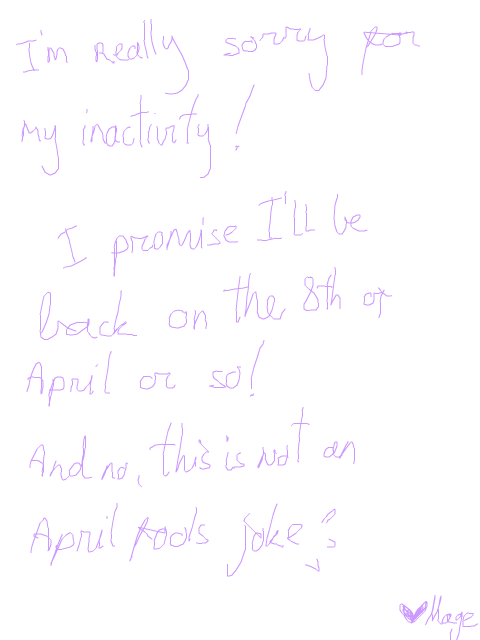 I'm really sorry for
my inactivity!
I promise I'll be
back on the 8th of
April or so!
And no, this is not an
April fools joke ;
Mage